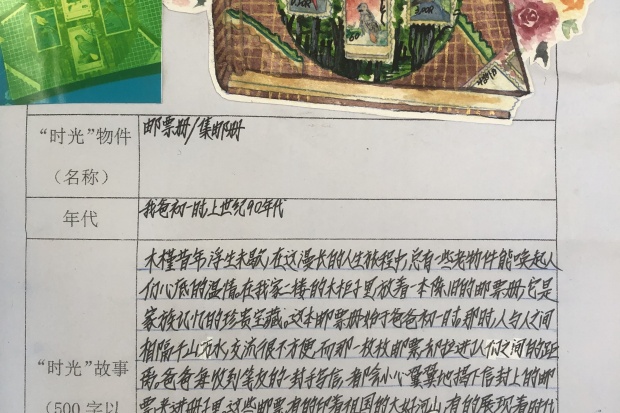 "时光"物件
邮票册/集邮册
(名称)
年代
我爸初一时,上世纪90年代
木槿昔年,浮生未歇,在这漫长的人生旅程中,总有一些老物件能唤起人
们心底的温情。在我家二楼的木柜子里放着一本陈旧的邮票册,它是
家族记忆的珍贵宝藏。这本邮票册始于爸爸初一时,那时,人与人之间
相隔千山万水,交流很不方便,而那一枚枚邮票却拉进了人们之间的距
"时光"故事
离,爸爸每收到笔友的一封书信,都会小心翼翼地揭下信封上的邮
(500 字以
票夹进册子里,这些邮票有的印着祖国的大好河山,有的展现着时代